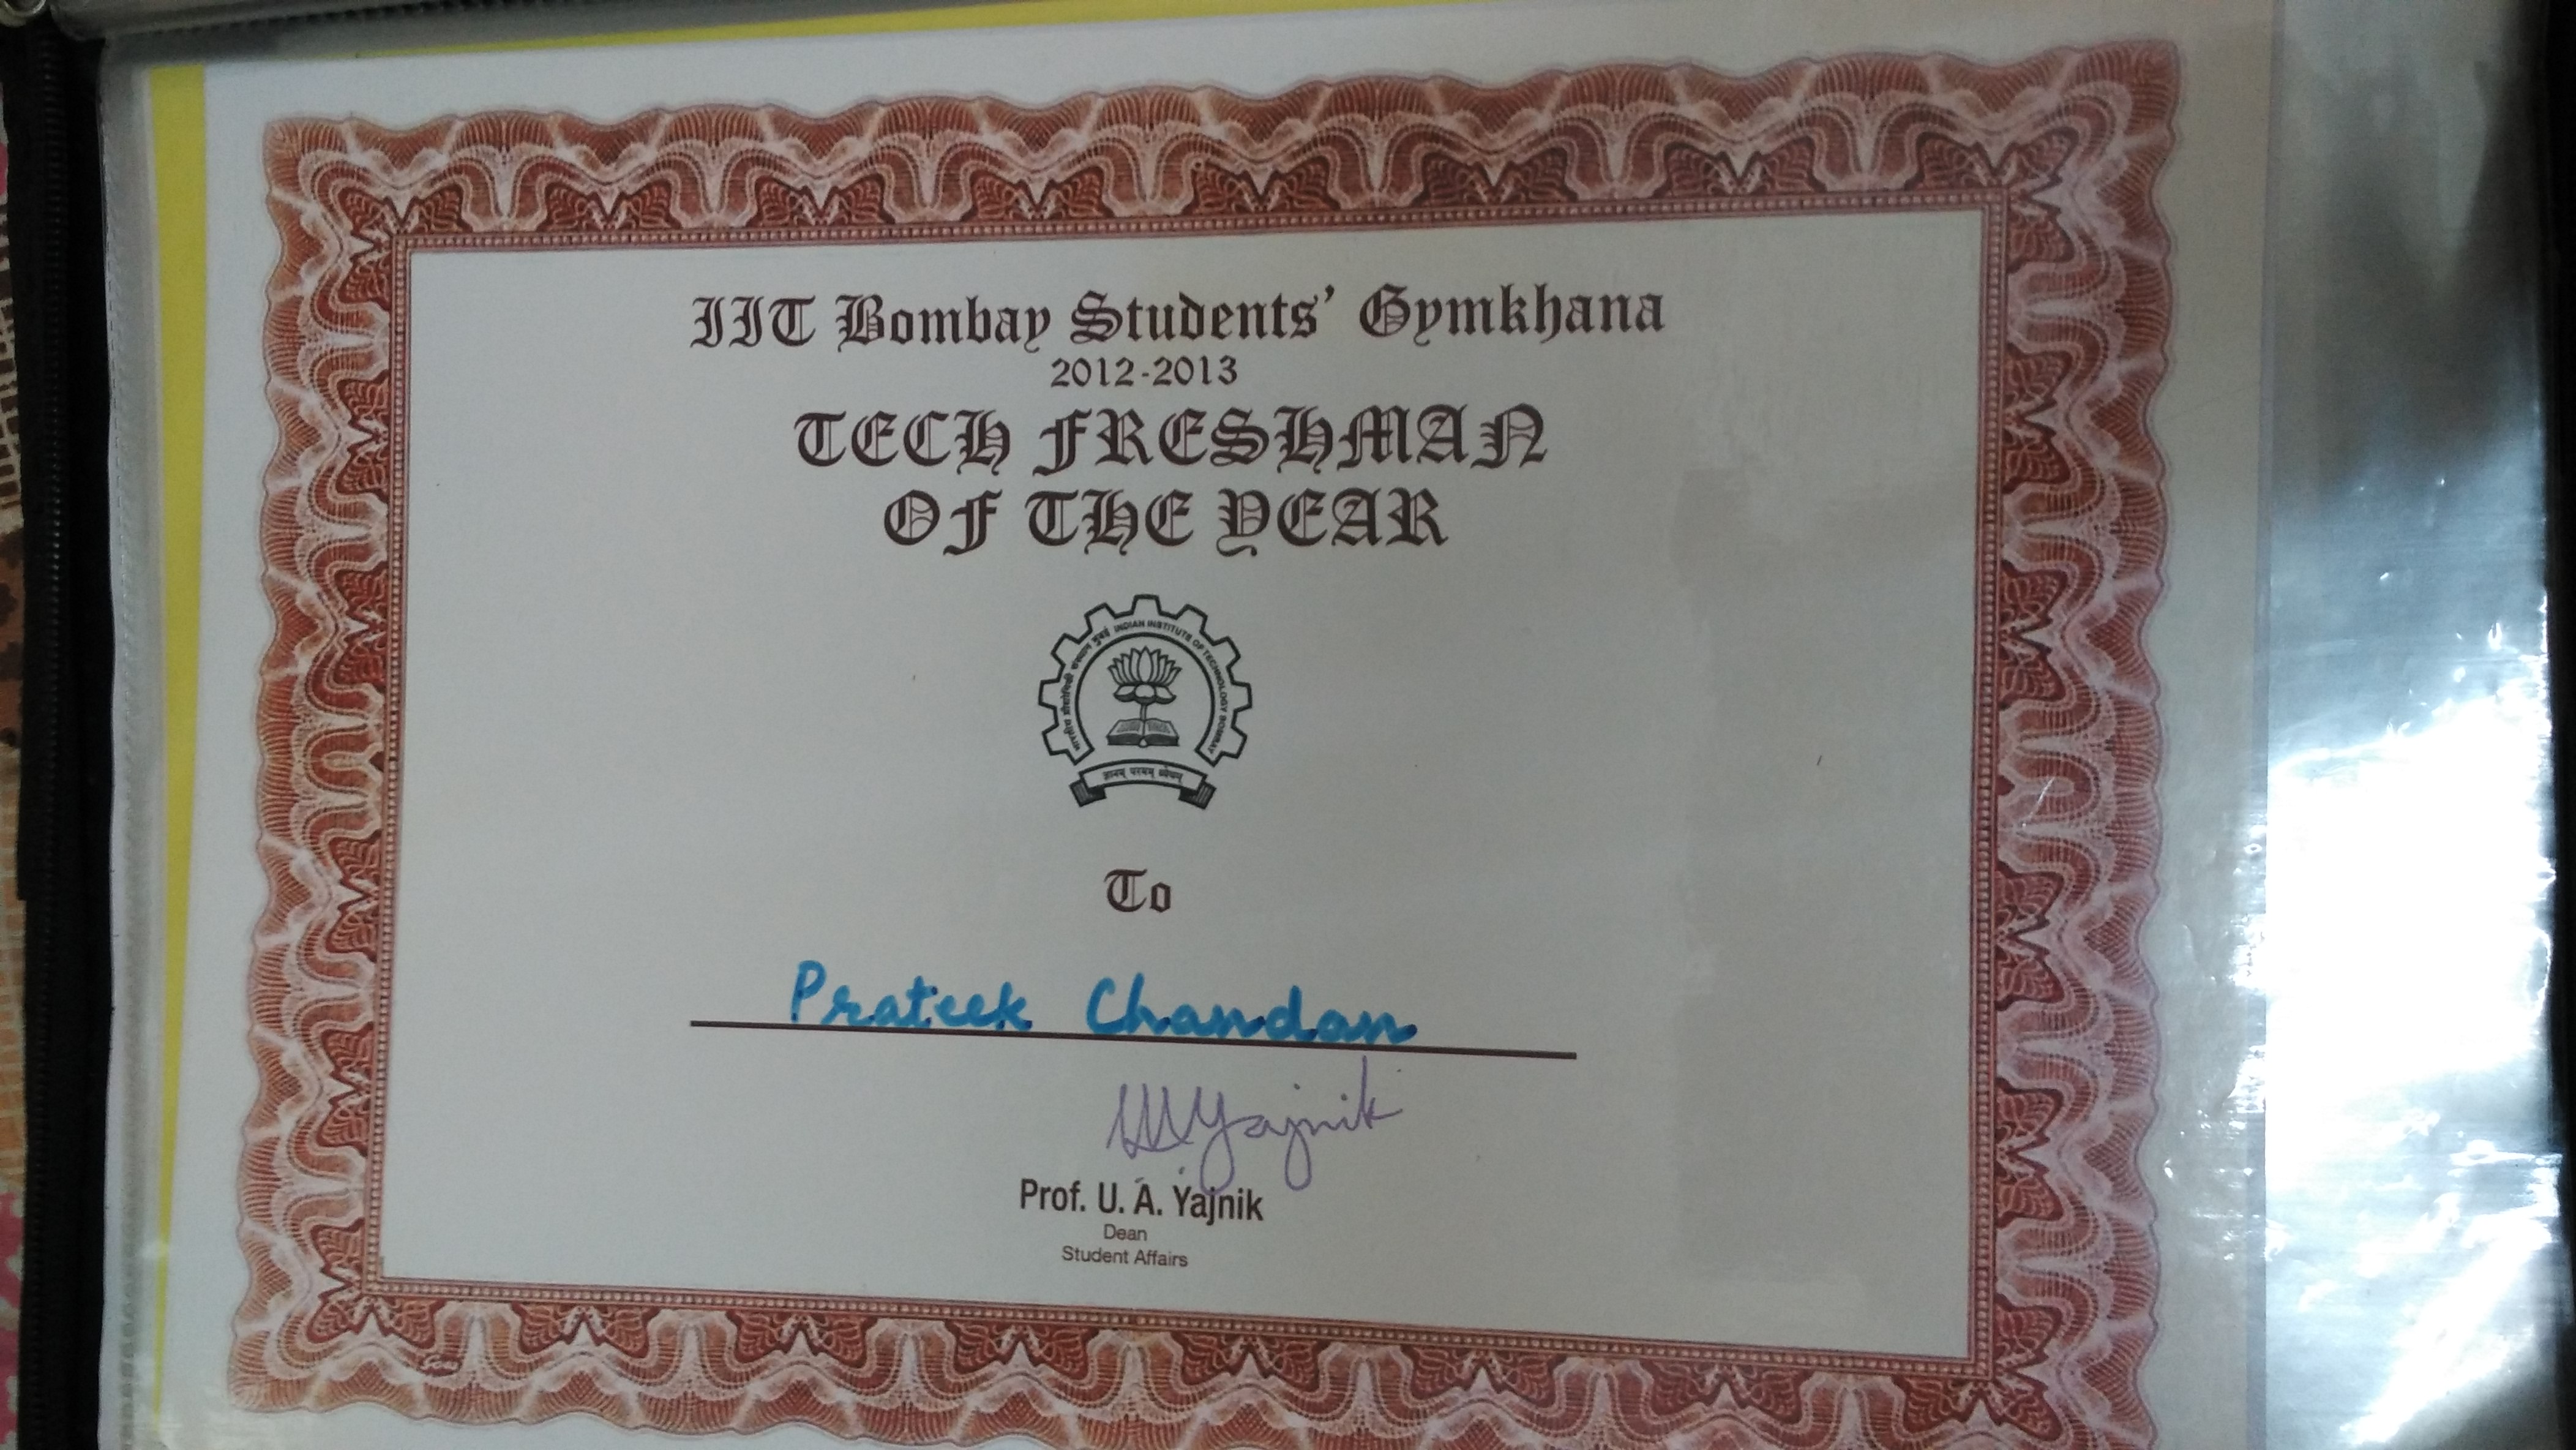 IIT Bombay Students' Gymkhana
2012-2013
TECH FRESHMAN
OF THE YEAR
भारतीय प्रौद्योगिकी संस्थान मुंबई INDIAN INSTITUTE OF TECHNOLOGY BOMBAY
ज्ञानम् परमम् ध्येयम्
To
Prateek Chandan
UAYajnik
Prof. U. A. Yajnik
Dean
Student Affairs